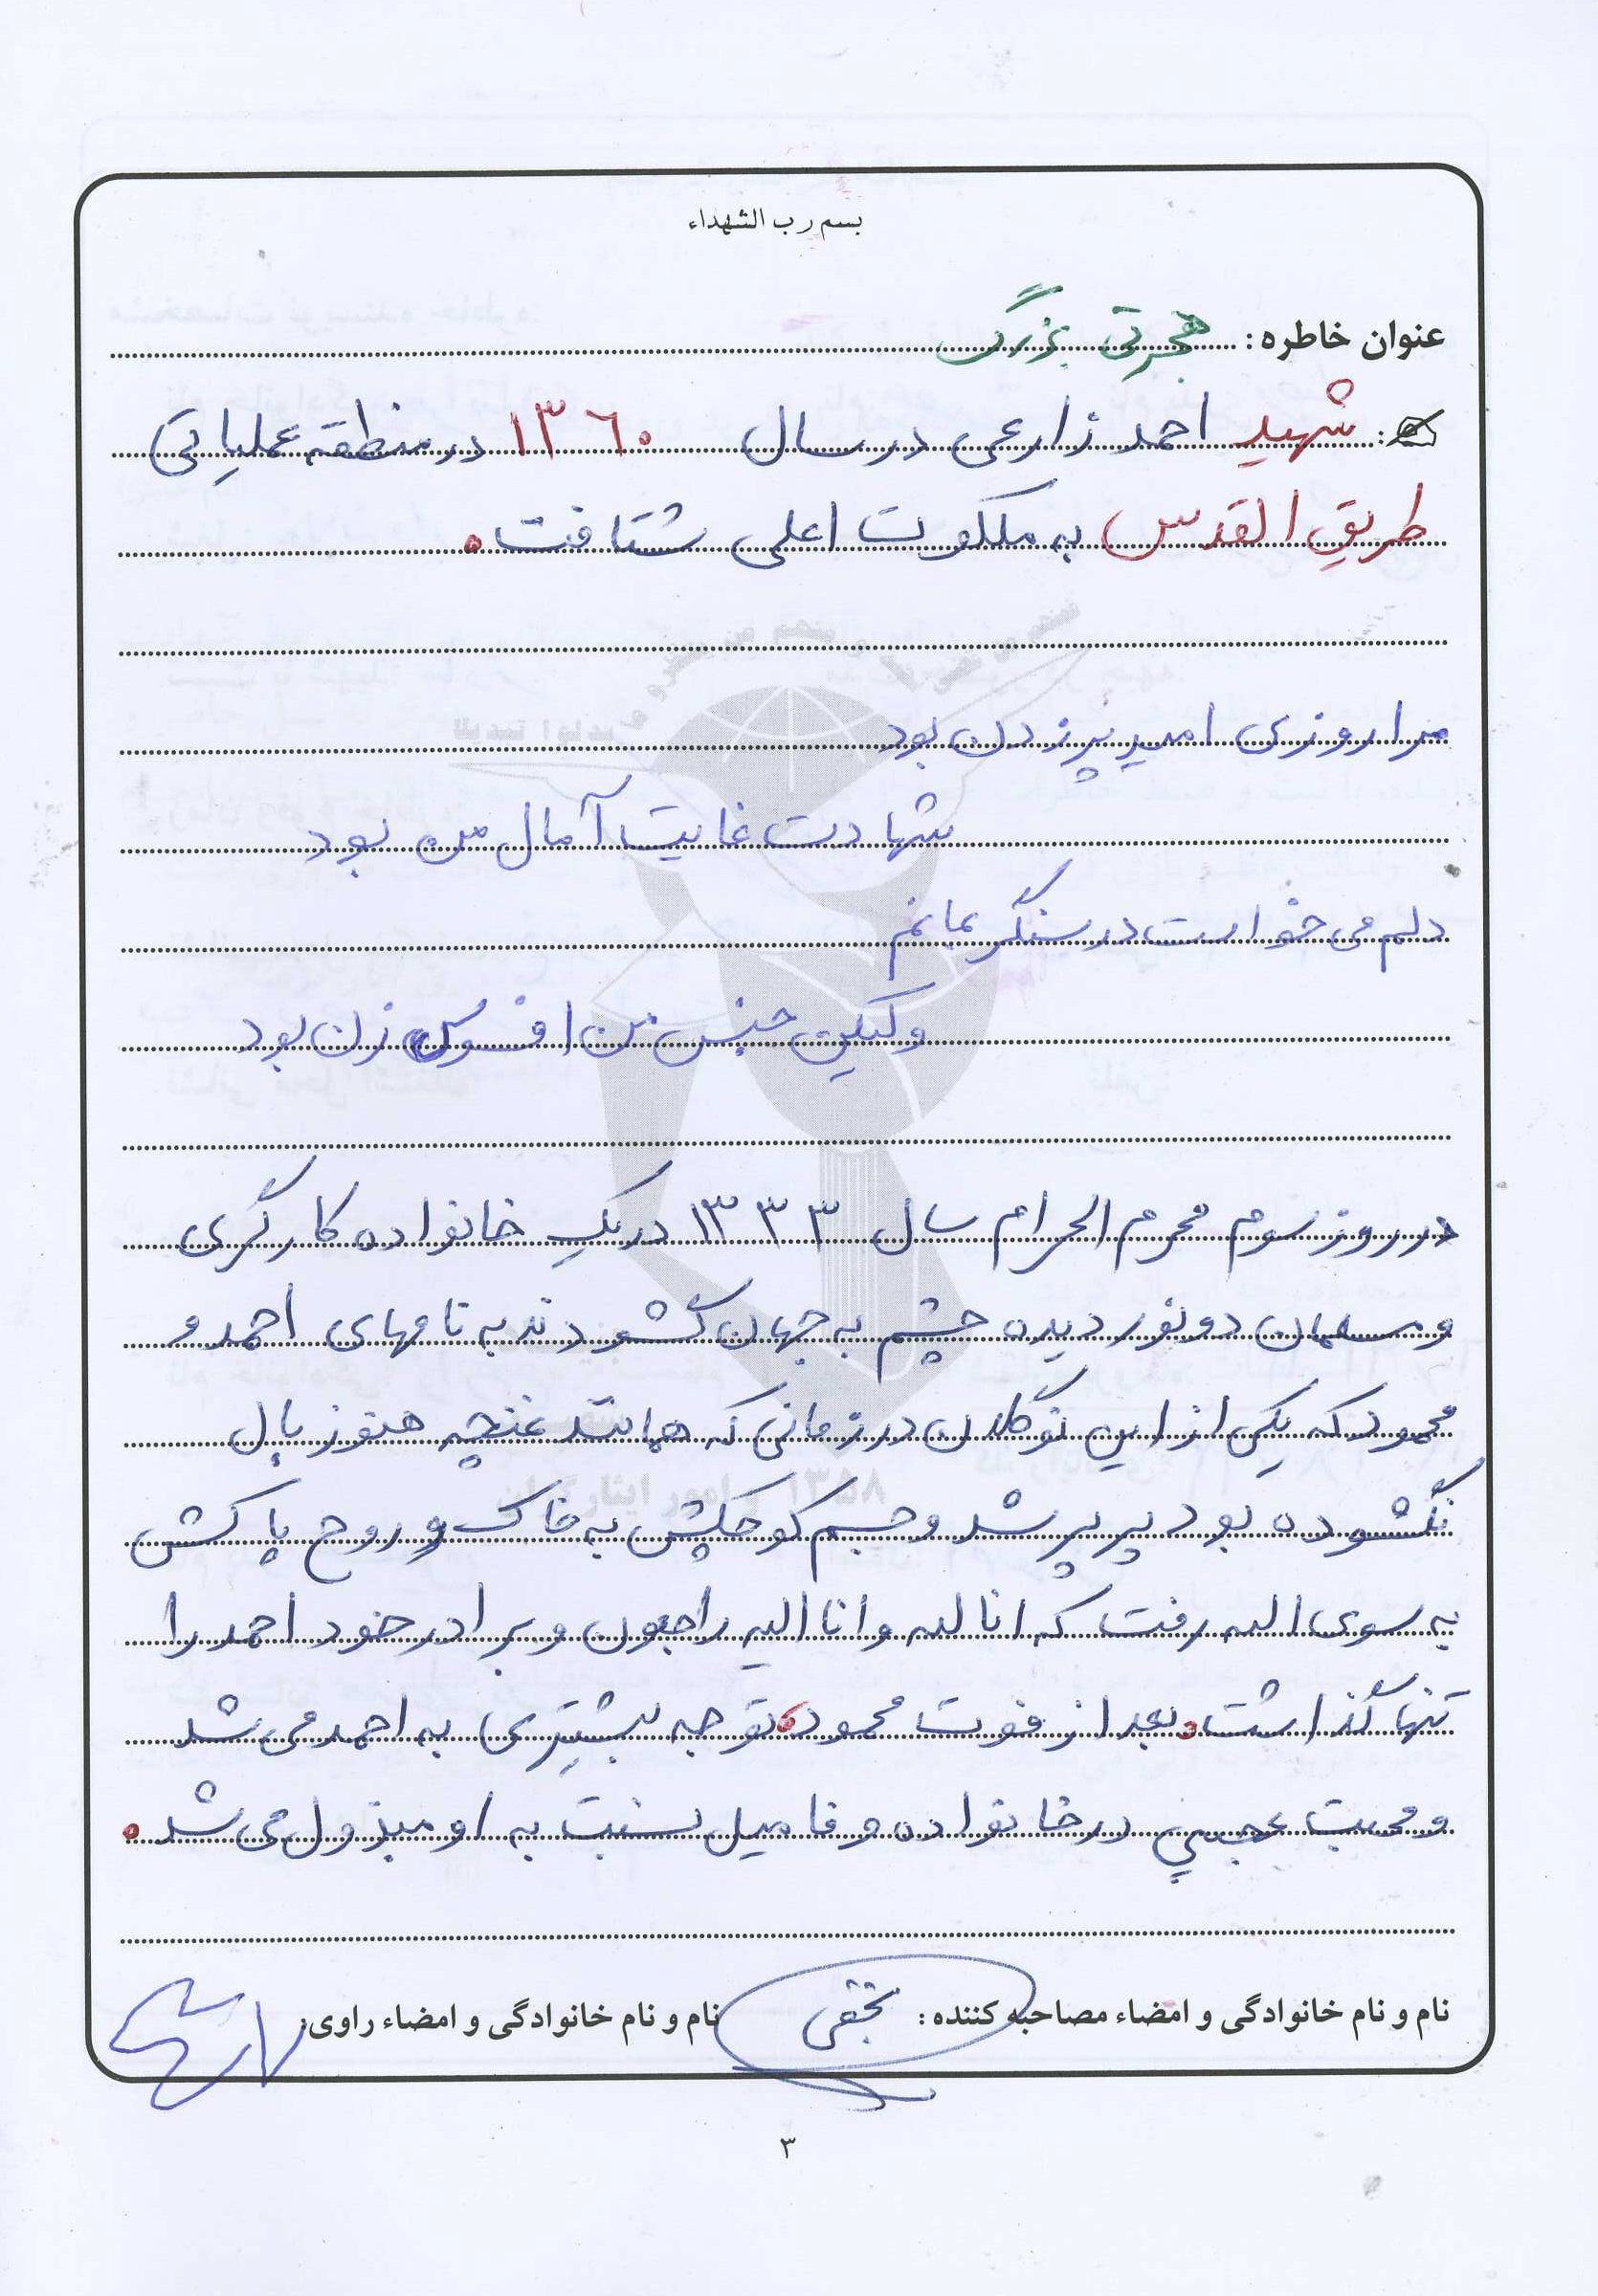 بسم رب الشهداء
عنوان خاطره: هجرتی بزرگ
شهید احمد زارعی در سال ۱۳۶۰ در منطقه عملیاتی
طریق القدس به ملکوت اعلی شتافت.
مرا روزی امید پر زدن بود
شهادت غایت آمال من بود
دلم می خواست در سنگر بمانم
ولیکن جنس من افسوس زن بود
در روز سوم محرم الحرام سال ۱۳۳۳ در یک خانواده کارگری
و مسلمان دو نور دیده چشم به جهان گشودند به نامهای احمد و
محمود که یکی از این نوگلان در زمانی که همانند غنچه هنوز بال
نگشوده بود پرپر شد و جسم کوچکش به خاک و روح پاکش
به سوی الله رفت که انا لله و انا الیه راجعون و برادر خود احمد را
تنها گذاشت. بعد از فوت محمود، توجه بیشتری به احمد می شد
و محبت عجیبی در خانواده و فامیل نسبت به او مبذول می شد.
نام و نام خانوادگی و امضاء مصاحبه کننده:
نام و نام خانوادگی و امضاء راوی:
۳